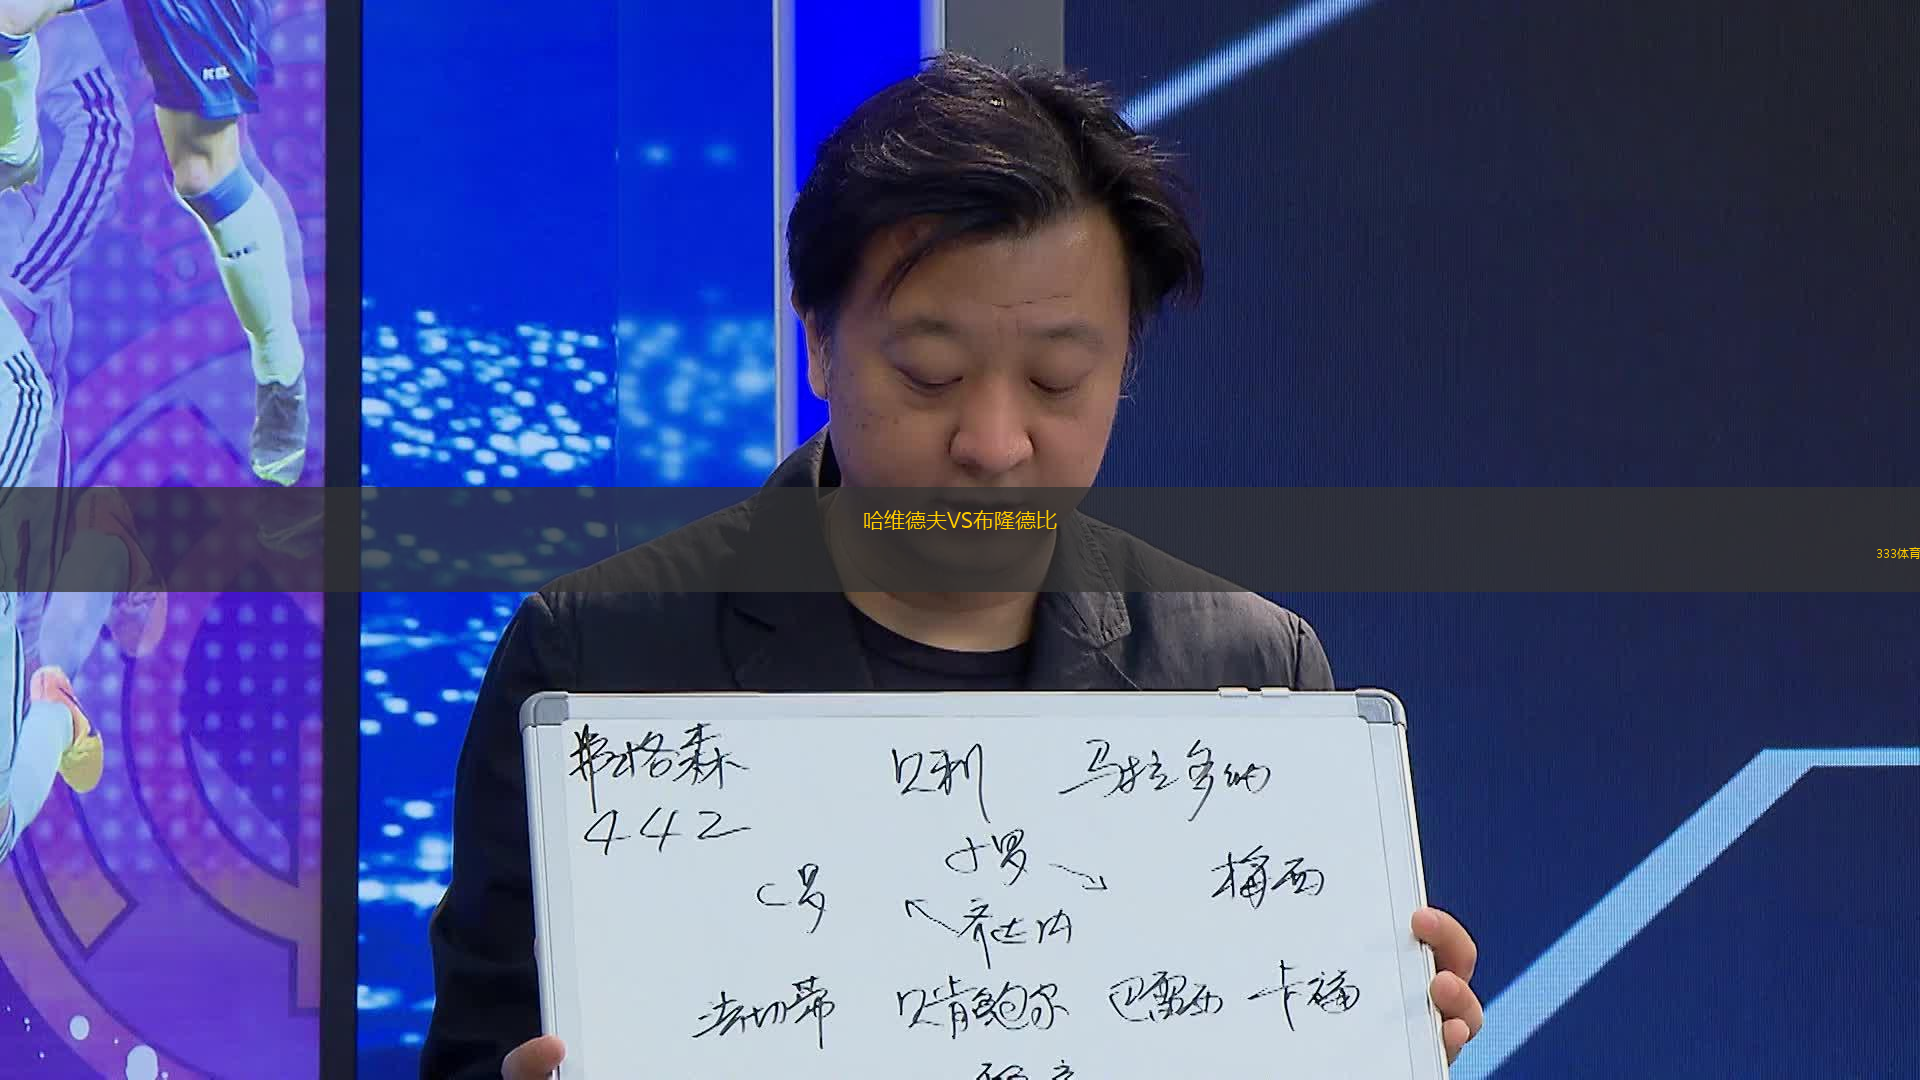 KEL
哈维德夫VS布隆德比
333体育
弗格森 贝利 马拉多纳
442
小罗
C罗 梅西
齐达内
法切蒂 贝肯鲍尔 巴雷西 卡福